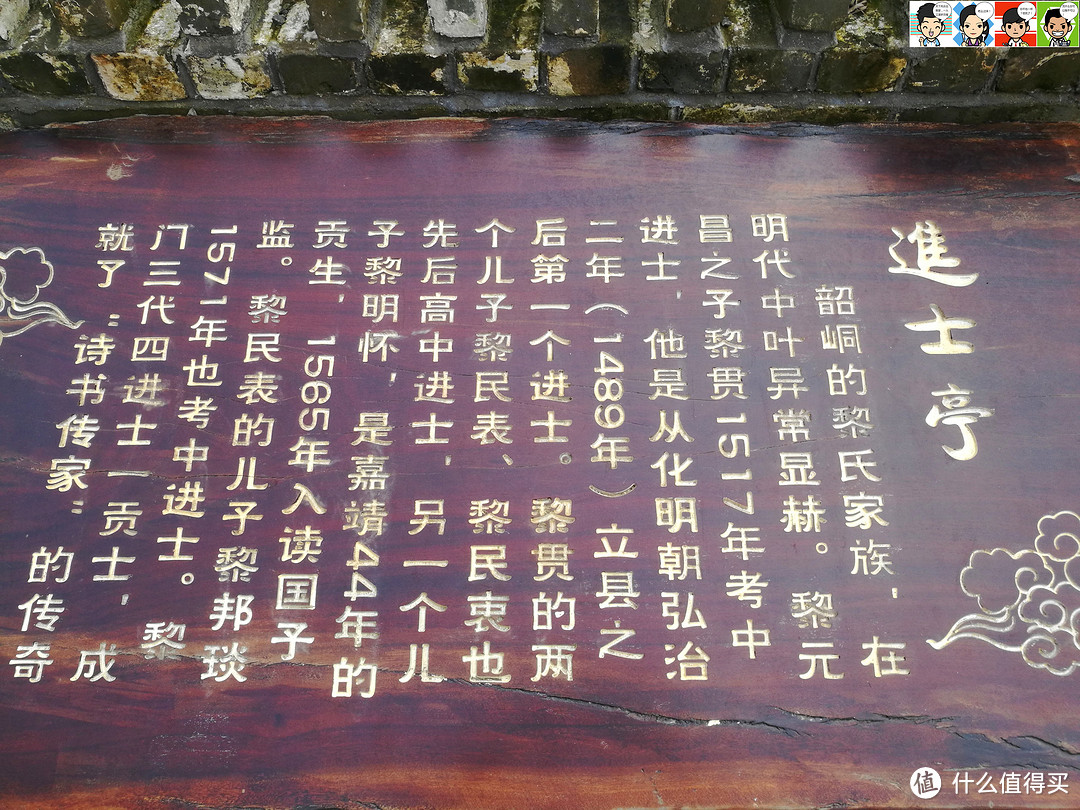 進士亭
韶峒的黎氏家族，在
明代中叶异常显赫。黎元
昌之子黎贯1517年考中
进士，他是从化明朝弘治
二年（1489年）立县之
后第一个进士。黎贯的两
个儿子黎民表、黎民衷也
先后高中进士，另一个儿
子黎明怀，是嘉靖44年的
贡生，1565年入读国子
监。黎民表的儿子黎邦琰
1571年也考中进士。黎
门三代四进士一贡士，成
就了“诗书传家”的传奇
值 什么值得买